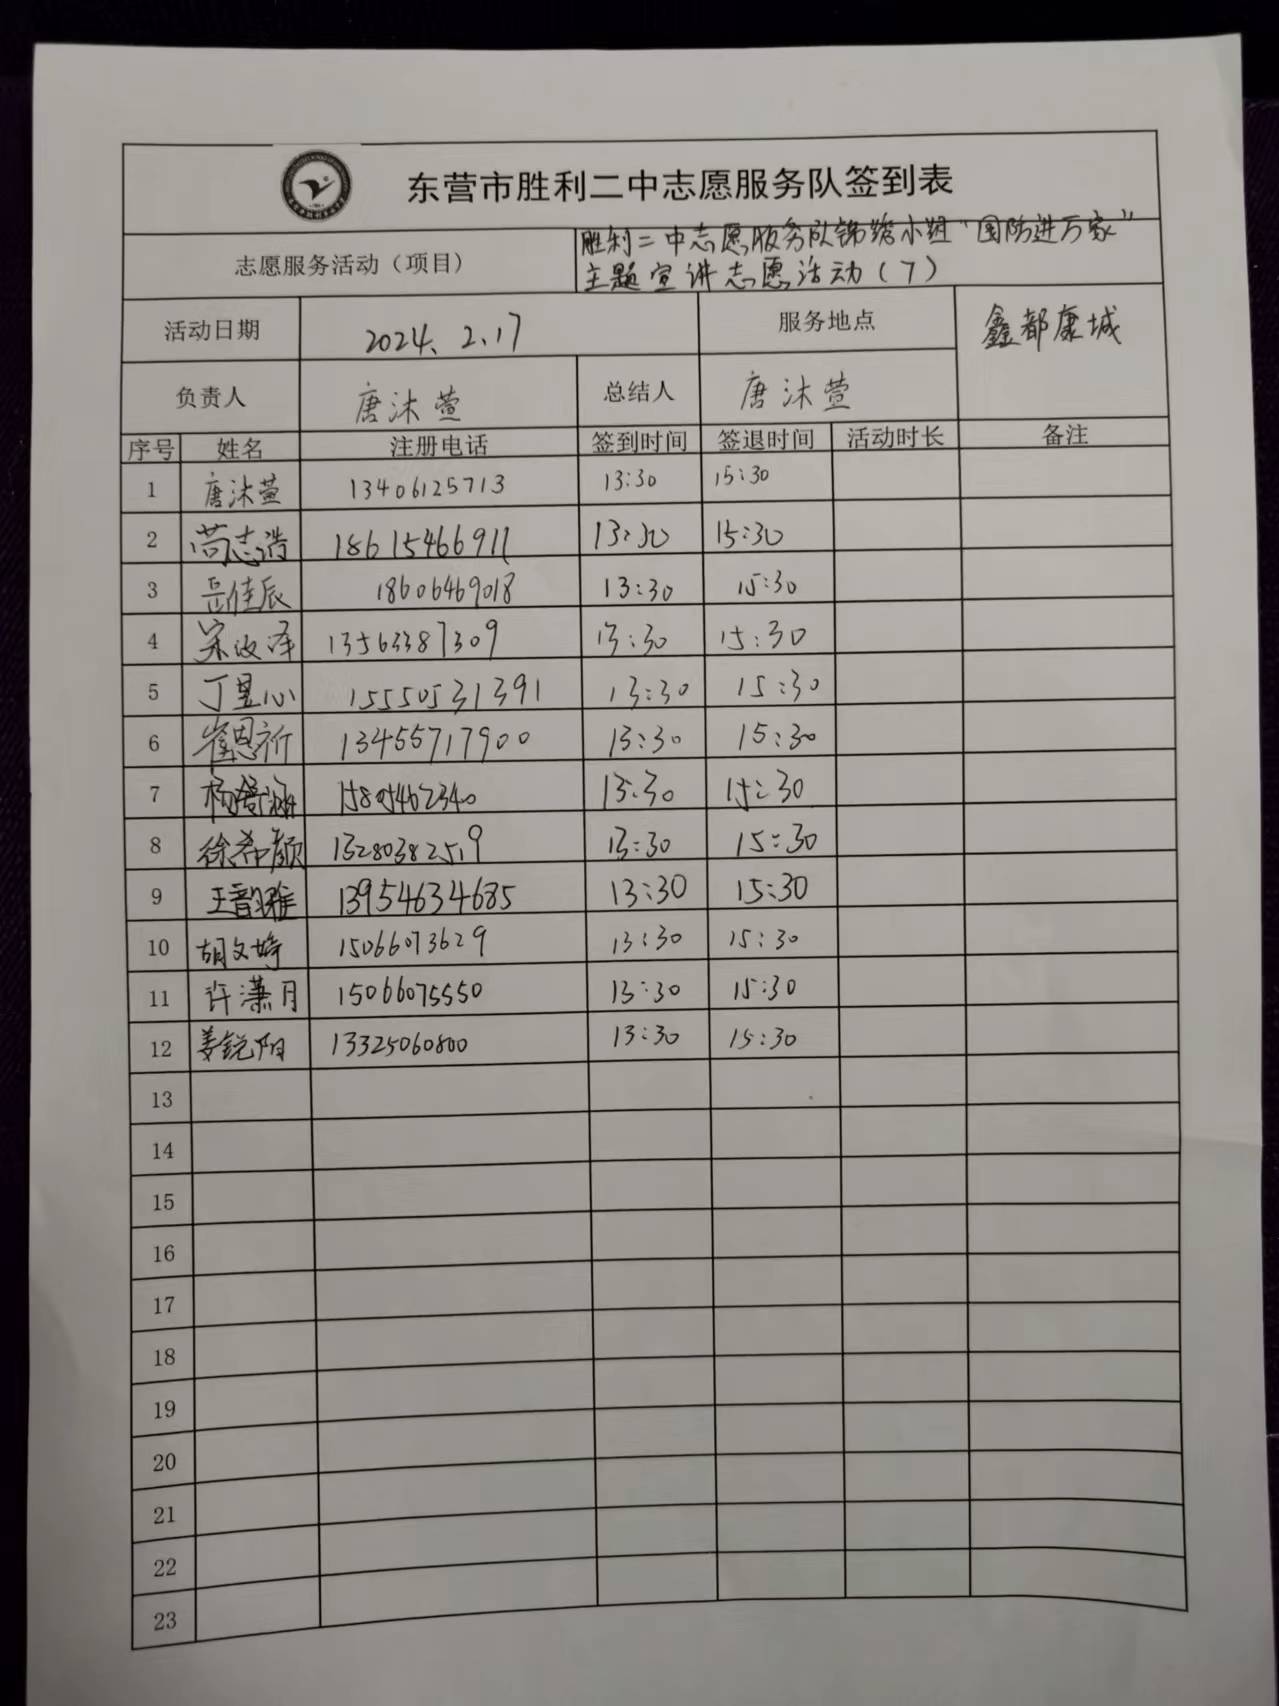 东营市胜利二中志愿服务队签到表
志愿服务活动（项目） 胜利二中志愿服务队锦绣小组“国防进万家”
主题宣讲志愿活动（7）
活动日期 2024.2.17 服务地点 鑫都康城
负责人 唐沐萱 总结人 唐沐萱
序号 姓名 注册电话 签到时间 签退时间 活动时长 备注
1 唐沐萱 13406125713 13:30 15:30
2 尚志浩 18615466911 13:30 15:30
3 岳佳辰 18606469018 13:30 15:30
4 宋汶泽 13563387309 13:30 15:30
5 丁昱心 15550531391 13:30 15:30
6 崔恩祈 13455717900 13:30 15:30
7 15805462340 13:30 15:30
8 徐希颜 13280382519 13:30 15:30
9 王韵雅 13954634685 13:30 15:30
10 胡文婷 15066073629 13:30 15:30
11 许潇月 15066075550 13:30 15:30
12 姜锐阳 13325060800 13:30 15:30
13
14
15
16
17
18
19
20
21
22
23